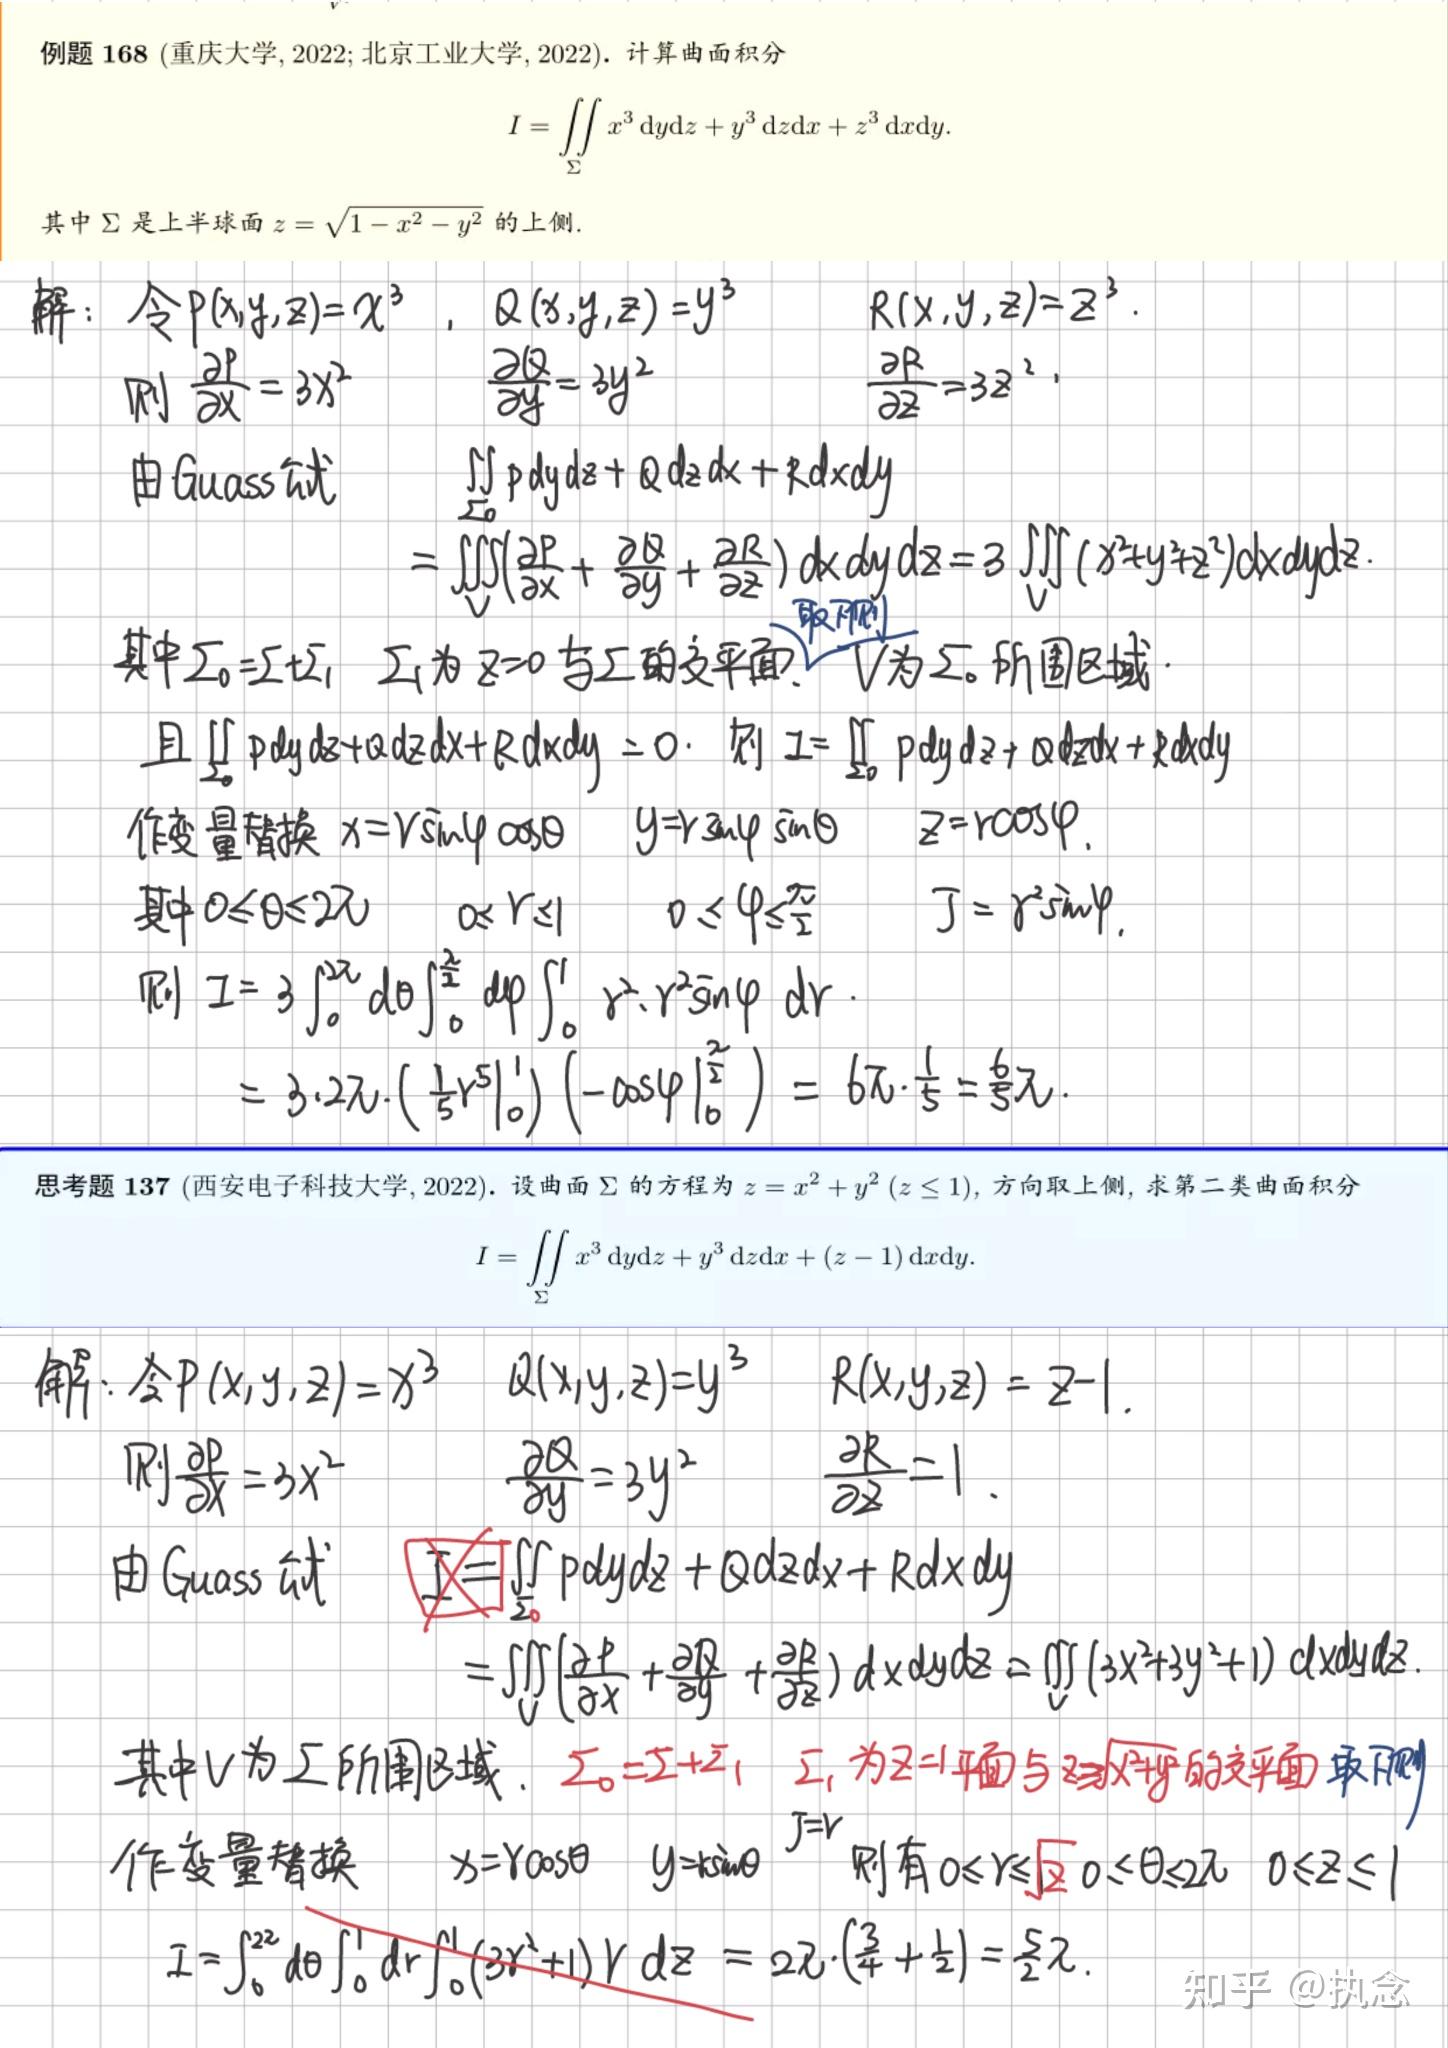 例题 168 (重庆大学, 2022; 北京工业大学, 2022). 计算曲面积分
I = ∬_Σ x³ dydz + y³ dzdx + z³ dxdy.
其中 Σ 是上半球面 z = √(1 − x² − y²) 的上侧.
解: 令P(x,y,z)=x³ , Q(x,y,z)=y³ R(x,y,z)=z³.
则 ∂P/∂x = 3x² ∂Q/∂y = 3y² ∂R/∂z = 3z².
由Guass公式 ∬_Σ₀ Pdydz + Qdzdx + Rdxdy
= ∭_V (∂P/∂x + ∂Q/∂y + ∂R/∂z) dxdydz = 3∭_V (x²+y²+z²)dxdydz.
取下侧
其中Σ₀=Σ+Σ₁ Σ₁为 z=0 与Σ的交平面. V为Σ₀所围区域.
且 ∬_Σ₀ Pdydz+Qdzdx+Rdxdy = 0. 则 I= ∬_Σ₀ Pdydz+Qdzdx+Rdxdy
作变量替换 x=rsinφcosθ y=rsinφsinθ z=rcosφ.
其中 0≤θ≤2π 0≤r≤1 0≤φ≤π/2 J = r²sinφ.
则 I= 3∫₀^2π dθ ∫₀^π/2 dφ ∫₀^1 r²·r²sinφ dr.
= 3·2π·(1/5 r⁵|₀^1)(−cosφ|₀^π/2) = 6π·1/5 = 6/5 π.
思考题 137 (西安电子科技大学, 2022). 设曲面 Σ 的方程为 z = x² + y² (z ≤ 1), 方向取上侧, 求第二类曲面积分
I = ∬_Σ x³ dydz + y³ dzdx + (z − 1) dxdy.
解: 令P(x,y,z)=x³ Q(x,y,z)=y³ R(x,y,z) = z−1.
则 ∂P/∂x = 3x² ∂Q/∂y = 3y² ∂R/∂z = 1.
由Guass公式 I = ∬_Σ₀ Pdydz + Qdzdx + Rdxdy
= ∭_V (∂P/∂x + ∂Q/∂y + ∂R/∂z) dxdydz = ∭_V (3x²+3y²+1) dxdydz.
其中V为Σ所围区域. Σ₀=Σ+Σ₁ Σ₁为z=1平面与z=√x²+y²的交平面 取下侧
作变量替换 x=rcosθ y=rsinθ J=r 则有 0≤r≤√z 0≤θ≤2π 0≤z≤1
I= ∫₀^2π dθ ∫₀^1 dr ∫₀^1 (3r²+1)r dz = 2π·(3/4 + 1/2) = 5/2 π.
知乎 @执念